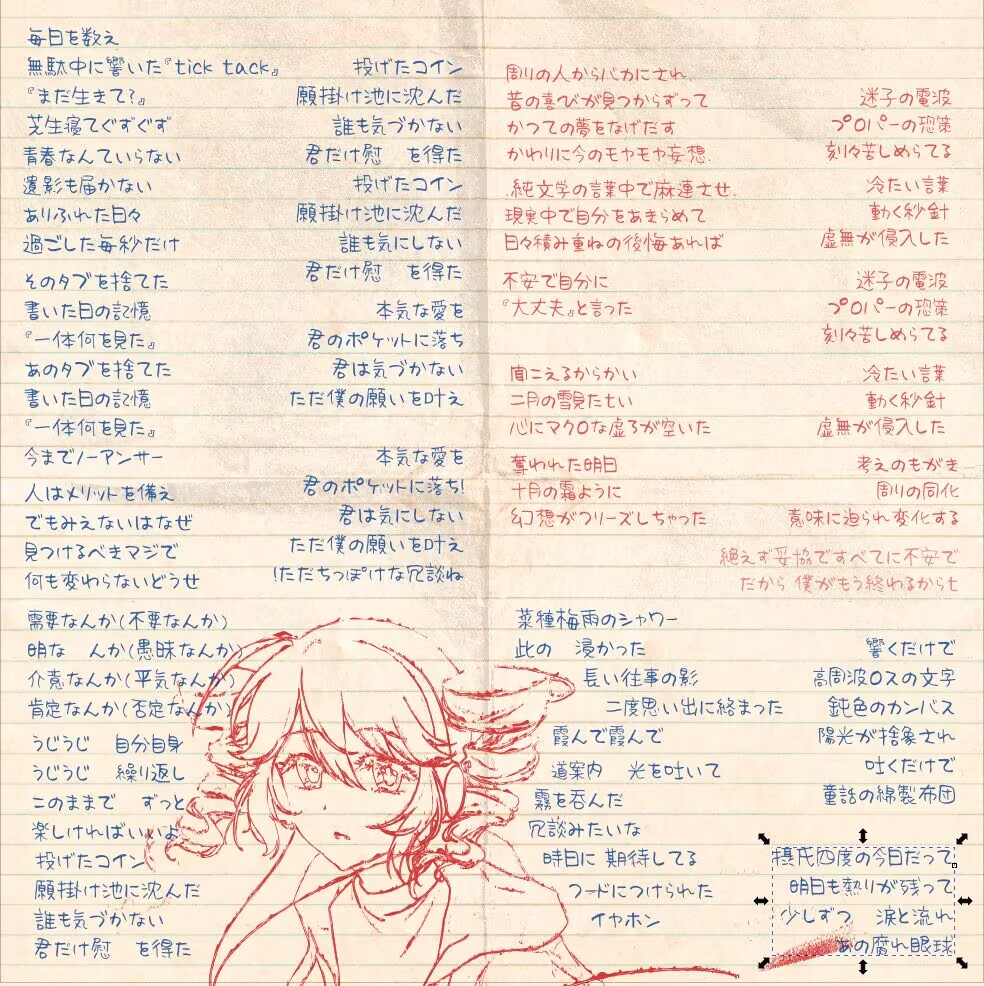 毎日を数え
無駄中に響いた『tick tack』
『まだ生きて?』
芝生寝てぐずぐず
青春なんていらない
遺影も届かない
ありふれた日々
過ごした毎秒だけ
そのタブを捨てた
書いた日の記憶
『一体何を見た』
あのタブを捨てた
書いた日の記憶
『一体何を見た』
今までノーアンサー
人はメリットを備え
でもみえないはなぜ
見つけるべきマジで
何も変わらないどうせ
需要なんか(不要なんか)
明な んか(愚昧なんか)
介意なんか(平気なんか)
肯定なんか(否定なんか)
うじうじ 自分自身
うじうじ 繰り返し
このままで ずっと
楽しければいいよ
投げたコイン
願掛け池に沈んだ
誰も気づかない
君だけ慰 を得た
投げたコイン
願掛け池に沈んだ
誰も気づかない
君だけ慰 を得た
投げたコイン
願掛け池に沈んだ
誰も気にしない
君だけ慰 を得た
本気な愛を
君のポケットに落ち
君は気づかない
ただ僕の願いを叶え
本気な愛を
君のポケットに落ち!
君は気にしない
ただ僕の願いを叶え
!ただちっぽけな冗談ね
周りの人からバカにされ
昔の喜びが見つからずって
かつての夢をなげだす
かわりに今のモヤモヤ妄想.
.純文学の言葉中で麻連させ.
現実中で自分をあきらめて
日々積み重ねの後悔あれば
不安で自分に
『大丈夫』と言った
聞こえるからかい
二月の雪見たせい
心にマクロな虚ろが空いた
奪われた明日
十月の霜ように
幻想がフリーズしちゃった
迷子の電波
プロパーの恐策
刻々苦しめらてる
冷たい言葉
動く秒針
虚無が侵入した
迷子の電波
プロパーの恐策
刻々苦しめらてる
冷たい言葉
動く秒針
虚無が侵入した
考えのもがき
周りの同化
意味に迫られ変化する
絶えず妥協ですべてに不安で
だから 僕がもう終わるからせ
菜種梅雨のシャワー
此の 浸かった
長い往事の影
二度思い出に絡まった
霞んで霞んで
道案内 光を吐いて
霧を呑んだ
冗談みたいな
時日に 期待してる
フードにつけられた
イヤホン
響くだけで
高周波ロスの文字
鈍色のカンバス
陽光が捨象され
吐くだけで
童話の綿製布団
摂氏四度の今日だって
明日も熱りが残って
少しずつ 涙と流れ
あの腐れ眼球